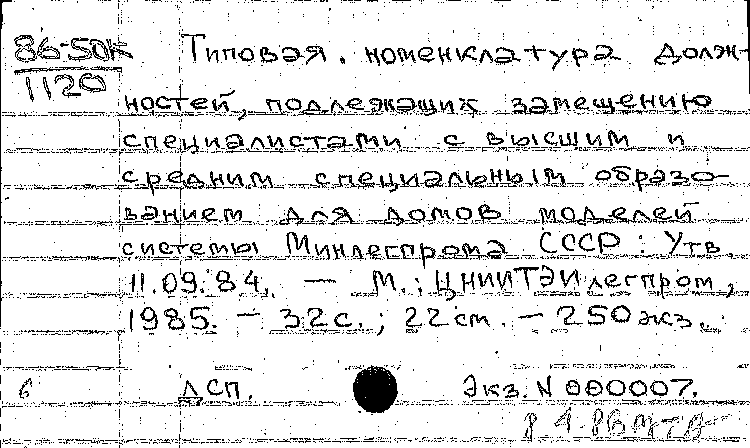 86-50к Типовая номенклатура долж-
1120
ностей, подлежащих замещению
специалистами с высшим и
средним специальным образо-
ванием для домов моделей
системы Минлегпрома СССР: Утв.
11.09.84. — М.: ЦНИИТЭИлегпром,
1985. — 32 с.; 22 см. — 250 экз.
6 ДСП. Экз. N 000007.